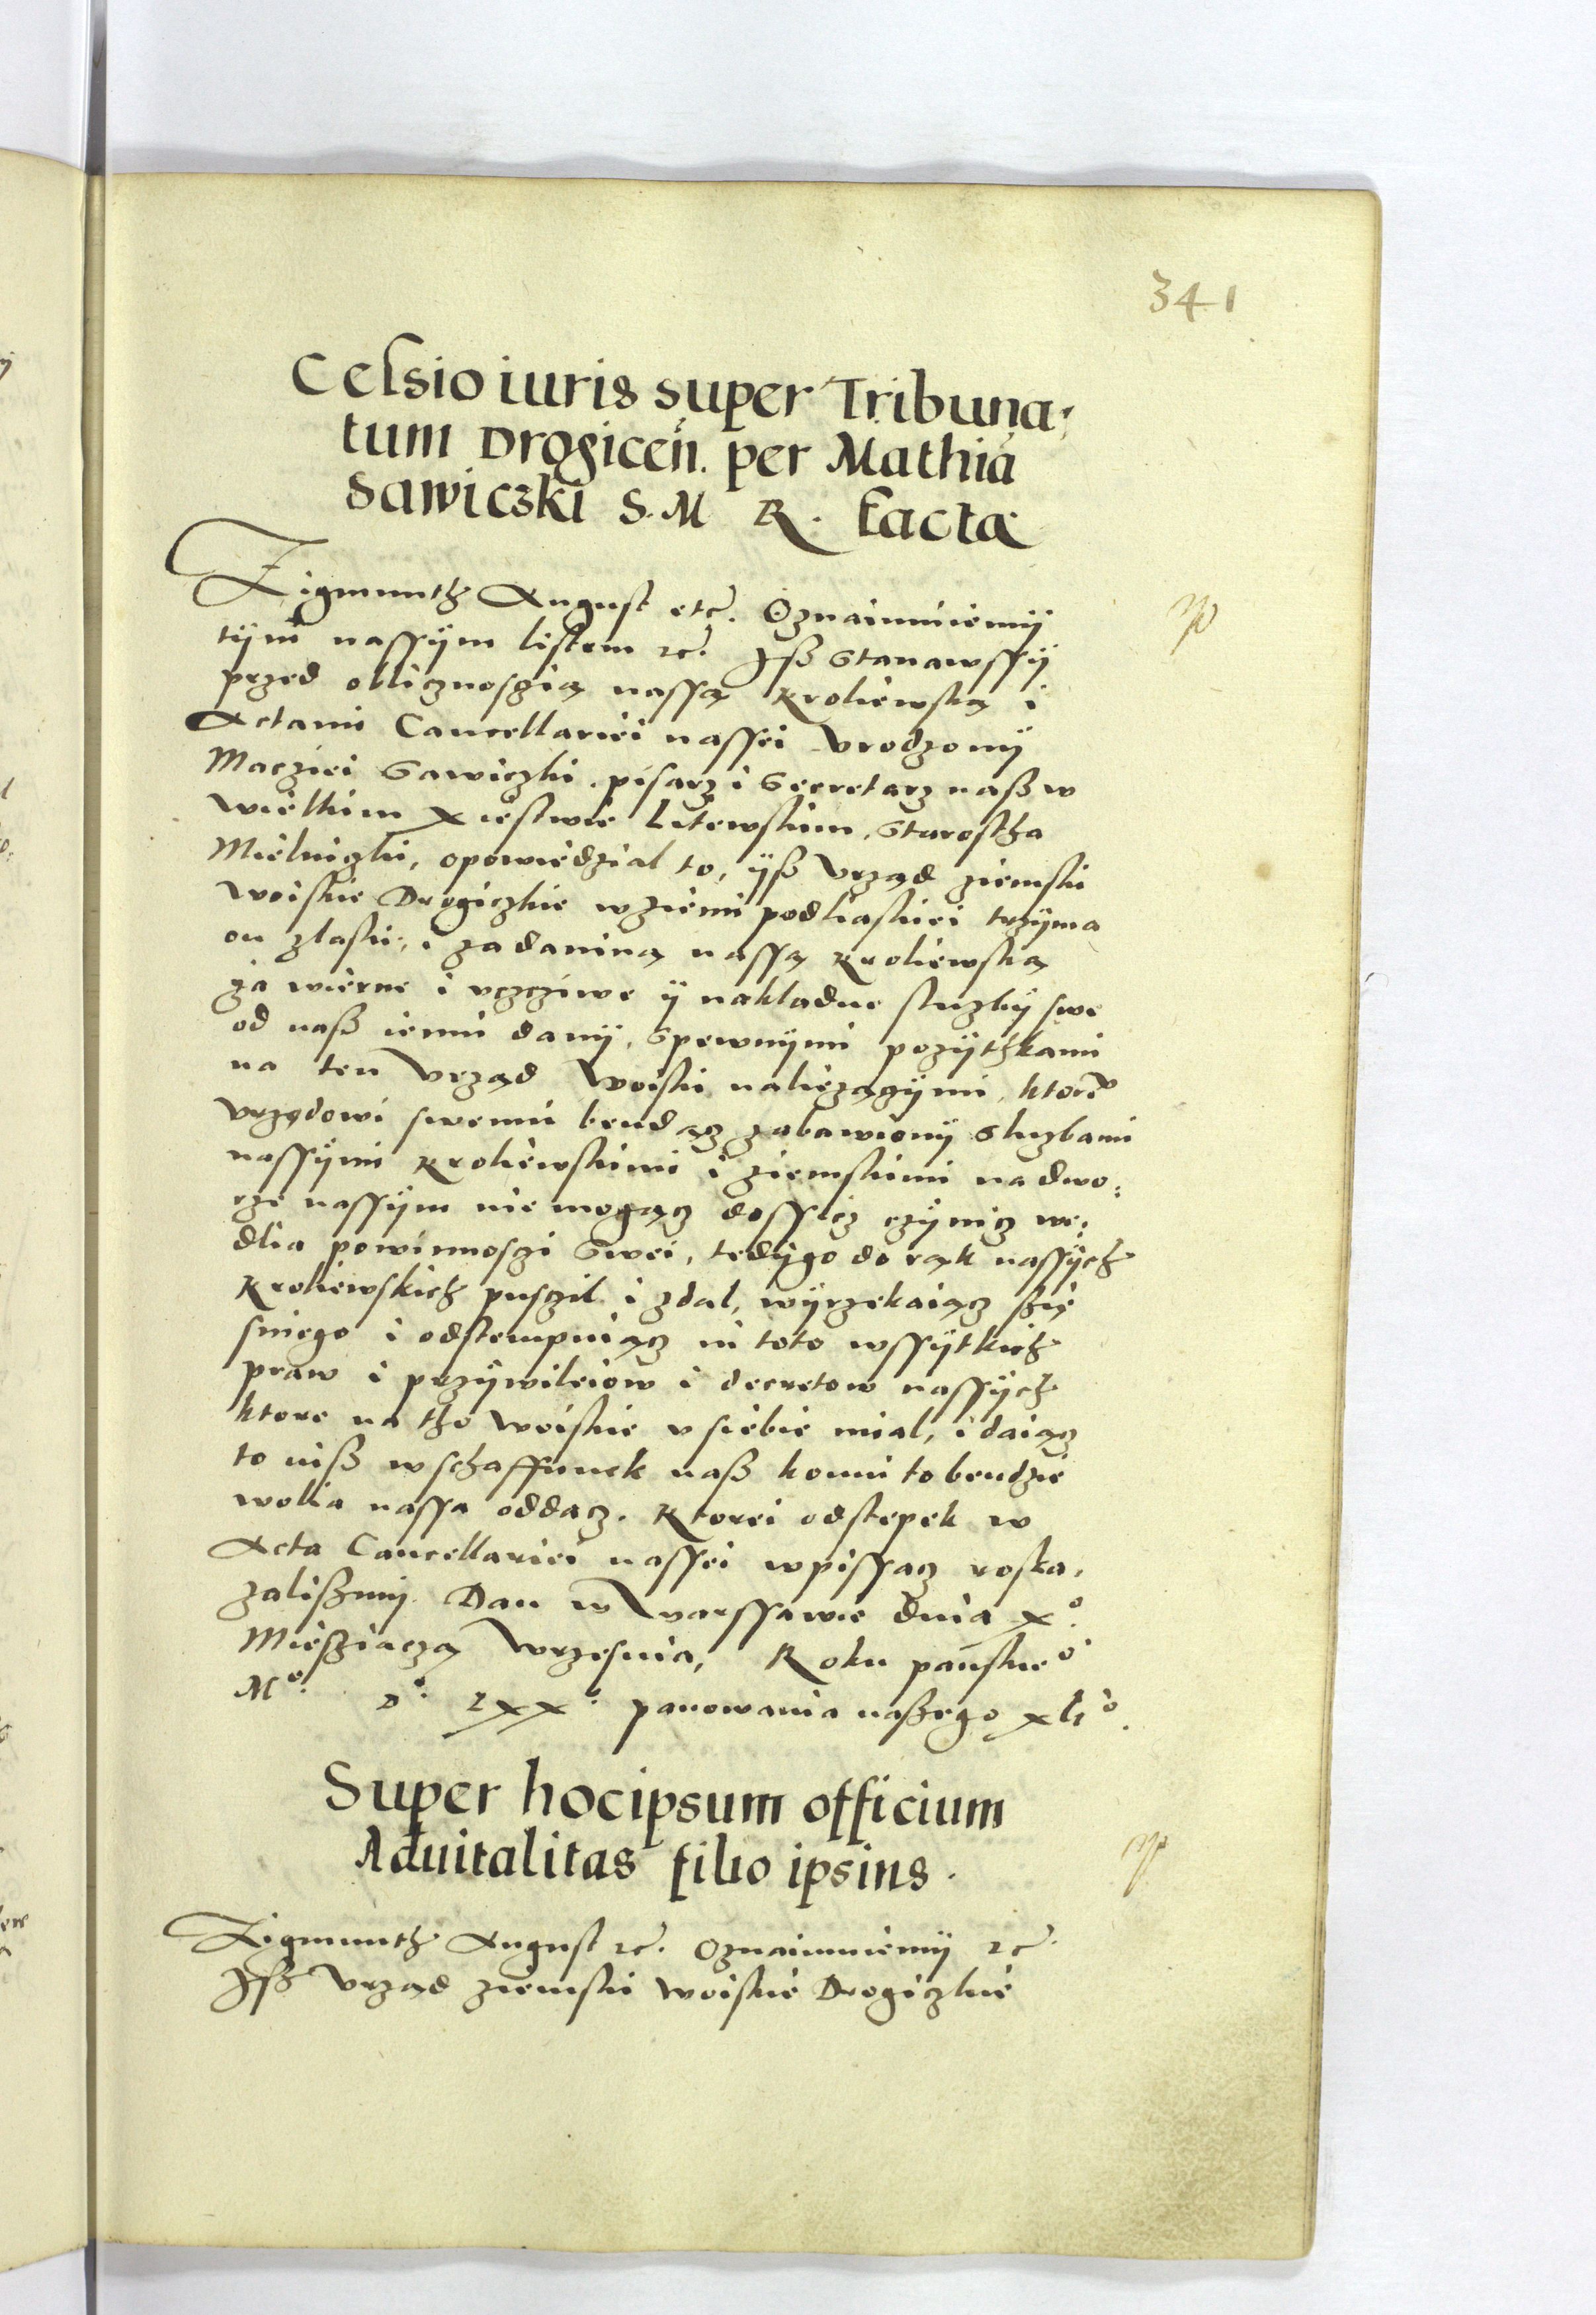 341
Celsio iuris super Tribuna,
tum Drogiceñ. per Mathiã
Sawiczki S. M R. facta
Zigmunth August etc. Oznaimuiemÿ
tÿm nassÿm listem etc. Iß Stanawssÿ
przed oblicznoscią nassą Kroliewską i
Actami Cancellariei nassei vrodzonÿ
Macziei Sawiczki. pisarz i Secretarz naß w
wielkim Xiestwie Litewskim, Starostha
Mielniczki, opowiedzial to, ÿß vrząd ziemski
woiskie Drogiczkie w ziemi podliaskiei trzÿma
on z laski, i za daniną nassą Kroliewską
za wierne i vczciwe ÿ nakladne sluzbÿ swe
od naß iemu danÿ, Spewnÿmi pozÿthkami
na ten vrząd woiski naliezącÿmi, ktorᵉᵐᵘ
vrzędowi swemu bendącz zabawionÿ Sluzbami
nassÿmi Kroliewskimi i ziemskimi na dwo:
rze nassÿm nie mogącz dossicz czÿnicz we:
dlia powinnosci Swei, tedÿ go do rąk nassÿch
Kroliewskich pusczil i zdal, wÿrzekaiącz szię
sniego i odstempuiącz in toto wssÿtkich
praw i przÿwileiow i decretow nassÿch
ktore na tho woiskie v siebie mial, i daiącz
to iuß w schaffunek naß komu to bendzie
wolia nassa oddacz. Ktorei odstępek w
Acta Cancellariei nassei wpissacz roska,
zalißmÿ. Dan w Warssawie dnia x°.
Miesziącza Wrzesnia, Roku pańskie°
M°. D°. Lxx°. panowania naßego xli°.
Super hoc ipsum officium
Aduitalitas filio ipsius.
Zigmunth August etc. Oznaimuiemÿ etc.
Iß vrząd ziemski woiskie Drogiczkie